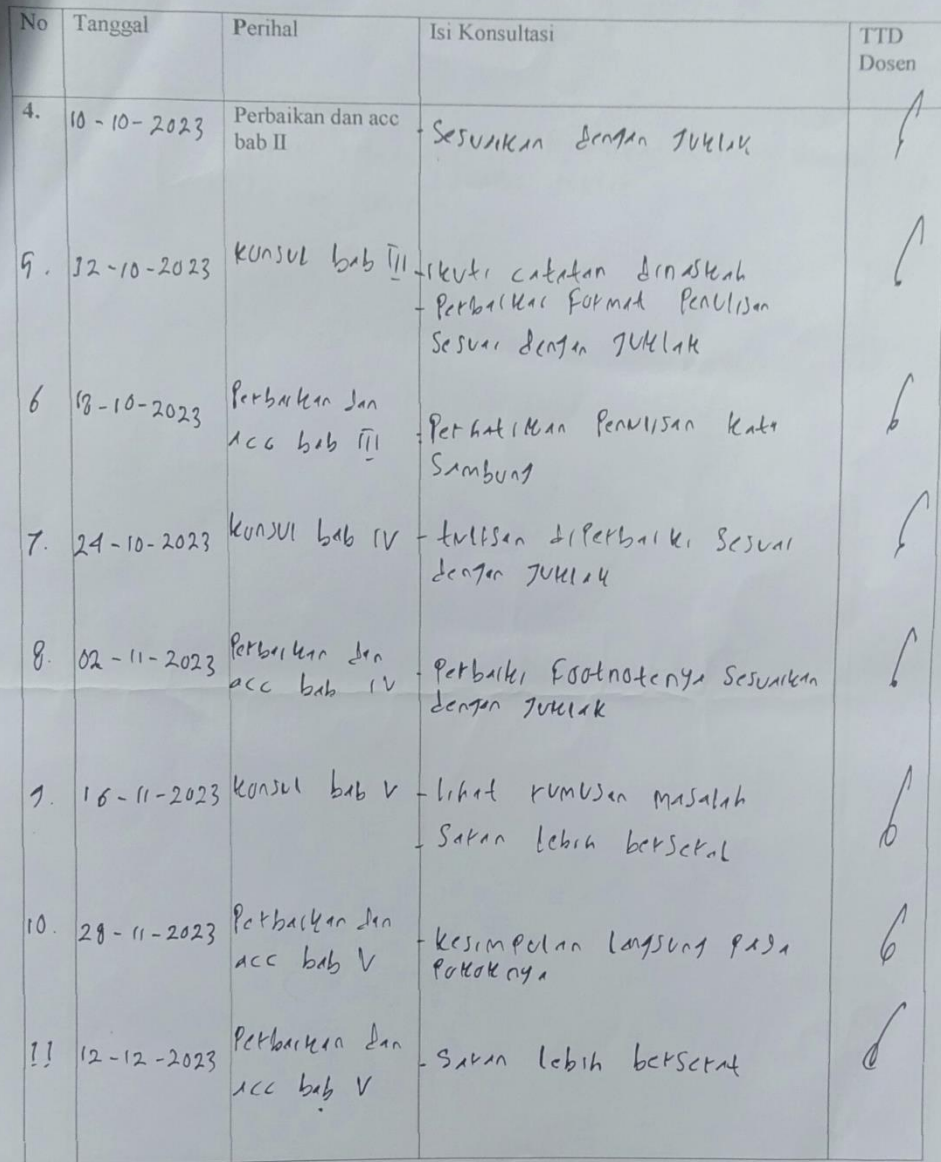 No Tanggal Perihal Isi Konsultasi TTD
Dosen
4. 10-10-2023 Perbaikan dan acc
bab II
- Sesuaikan dengan JUKLAK
5. 12-10-2023 Konsul bab III - ikuti catatan dinaskah
- Perbaikai Format Penulisan
Sesuai dengan JUKLAK
6 18-10-2023 Perbaikan dan
acc bab III
- Perhatikan Penulisan kata
Sambung
7. 24-10-2023 Konsul bab IV - tulisan diperbaiki Sesuai
dengan JUKLAK
8. 02-11-2023 Perbaikan dan
acc bab IV
- Perbaiki Footnotenya Sesuaikan
dengan JUKLAK
9. 16-11-2023 Konsul bab V - lihat rumusan masalah
- Saran lebih
10. 28-11-2023 Perbaikan dan
acc bab V
- Kesimpulan langsung pada
Pokoknya
11 12-12-2023 Perbaikan dan
acc bab V
- Saran lebih